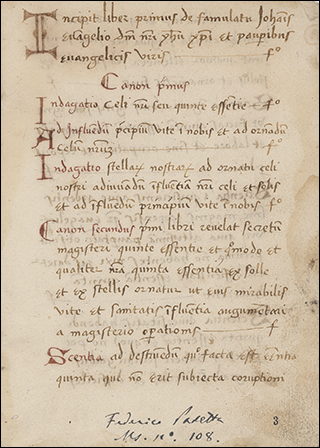 Incipit liber primus de famulatu Johãis
evãgelio dñi nr̃i yhũ xp̃i et paup̃ibus
evangelicis viris f°
Canon p̃mus
Indagatio Celi nr̃i seu quinte essẽtie f°
Ad Influẽdũ p̃cipiũ vite ĩ nobis et ad ornãdũ
Celũ nr̃m f°
Indagatio stellarꝝ nostrarꝝ ad ornatũ celi
nostri adiuvãdũ ĩfluẽtiã nr̃i celi et solis
et ad ĩfluẽdũ principiũ vite ĩ nobis f°
Canon secundus p̃mi libri revelat secretũ
magisterii quinte essentie et q̃modo et
qualiter nr̃a quinta essentia ex solle
et ex stellis ornatur ut eius mirabilis
vite et sanitatis ĩfluẽtia augumẽtari
a magisterio op̃ationis f
Scẽntia ad destruẽdũ facta est
quinta que nõ erit subiecta coruptioni
Federico Patetta
3
Ms. n°. 108.